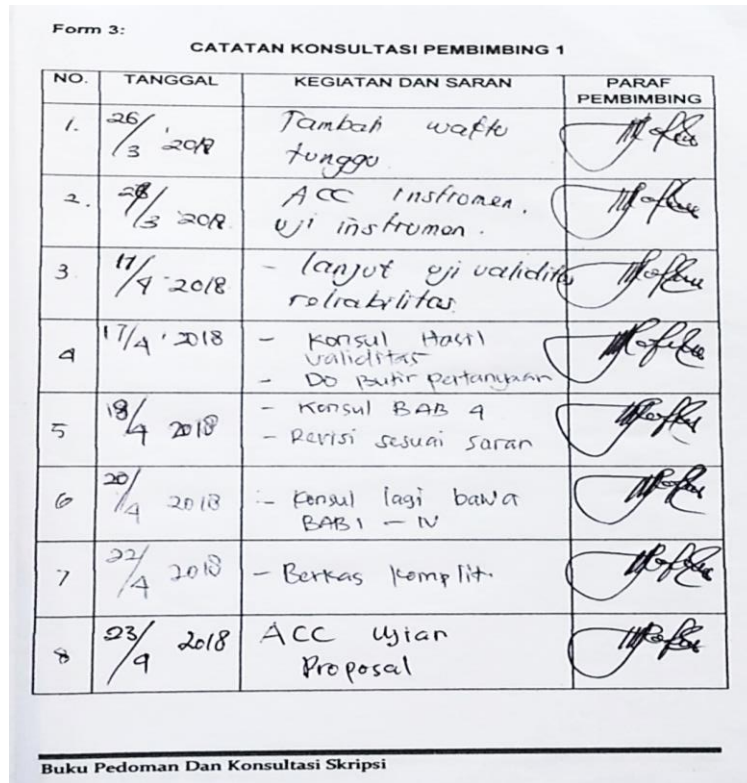 Form 3:
CATATAN KONSULTASI PEMBIMBING 1
NO. TANGGAL KEGIATAN DAN SARAN PARAF PEMBIMBING
1. 26/3 2018 Tambah waktu
tunggu
2. 28/3 2018 ACC instromen.
uji instrumen.
3. 17/4 2018 - lanjut uji validitas
reliabilitas
4 17/4 2018 - Konsul Hasil
validitas
- DO Butir pertanyaan
5 18/4 2018 - Konsul BAB 4
- Revisi sesuai saran
6 20/4 2018 - Konsul lagi bawa
BAB 1 - IV
7 22/4 2018 - Berkas komplit.
8 23/4 2018 ACC Ujian
Proposal
Buku Pedoman Dan Konsultasi Skripsi